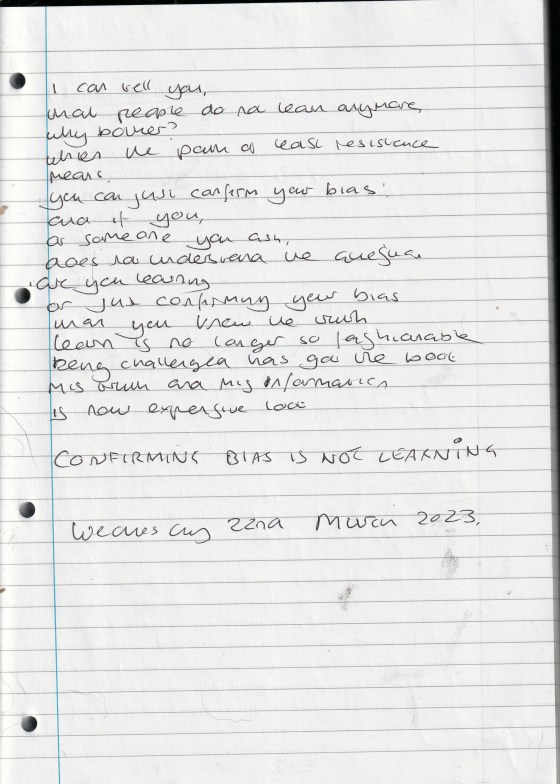 I can tell you,
that people do not learn anymore,
why bother?
when the path of least resistance
means.
you can just confirm your bias.
and if you,
or someone you ask,
does not understand the question.
are you learning
or just confirming your bias
that you knew the truth
learn is no longer so fashionable
being challenged has got the boot
mis truth and mis information
is now expensive loot
CONFIRMING BIAS IS NOT LEARNING
Wednesday 22nd March 2023.